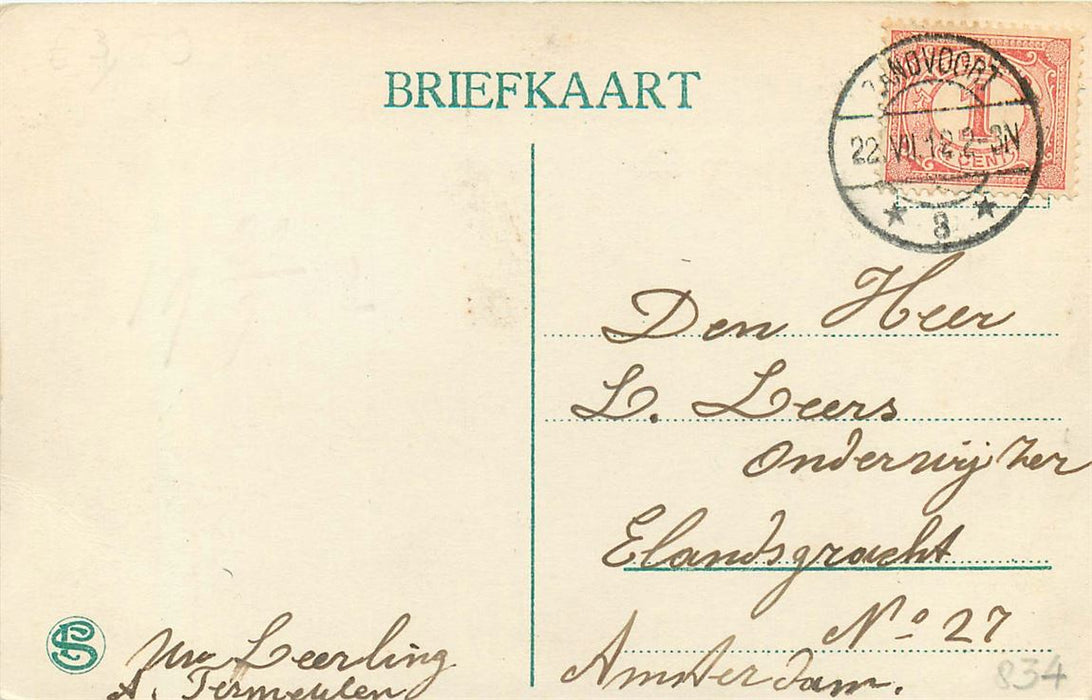 BRIEFKAART
ZANDVOORT
22.VII.12 2-3N
a
1
CENT
Den Heer
L. Leers
Onderwijzer
Elandsgracht
No 27
Amsterdam.
Uw Leerling
A. Termeulen
834